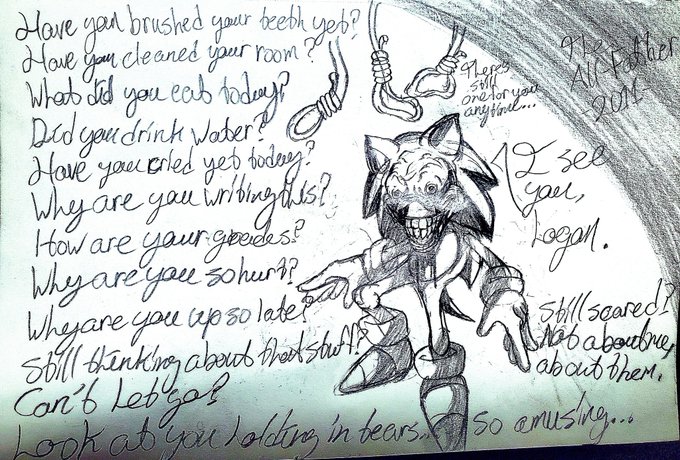 Have you brushed your teeth yet?
Have you cleaned your room?
What did you eat today?
Did you drink water?
Have you cried yet today?
Why are you writing this?
How are your grades?
Why are you so hurt?
Why are you up so late?
Still thinking about that stuff?
Can't let go?
Look at you holding in tears... so amusing...
There's
still
one for you
anytime...
The
All-Father
2011
I see
you,
Logan.
Still scared?
Not about me,
about them.